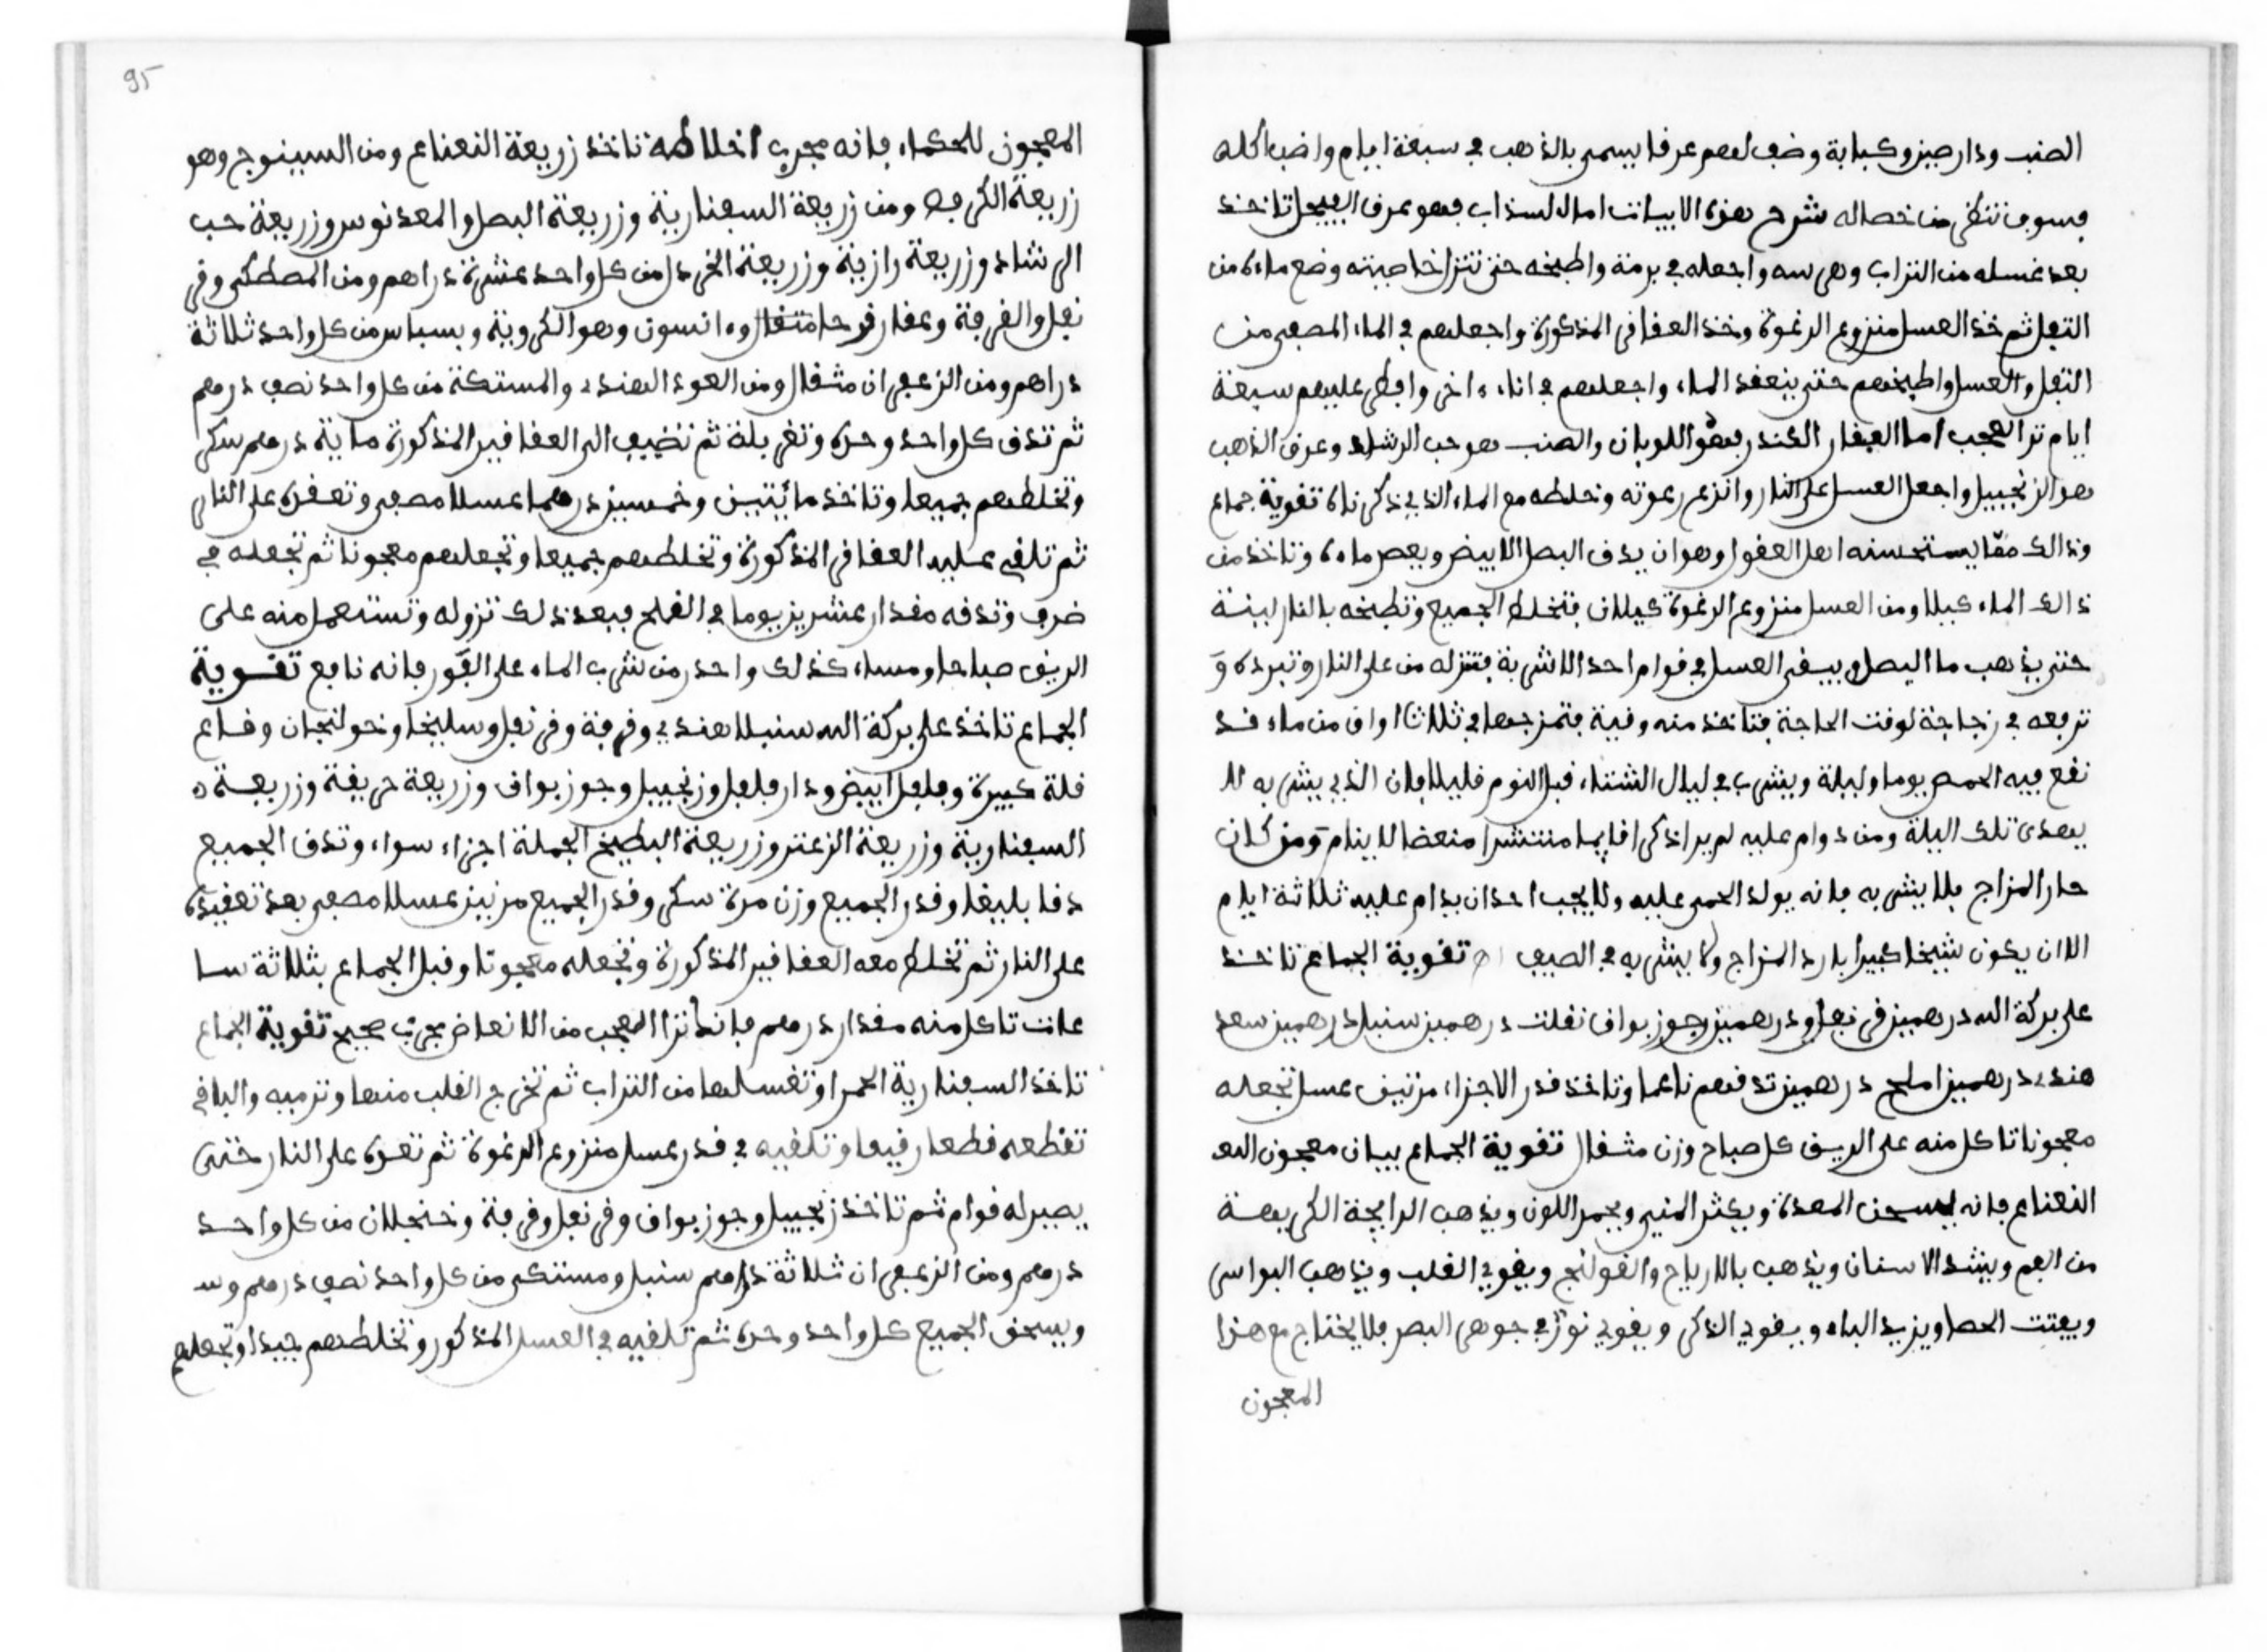 الصنب ودار صيني وكبابة وضف لهم عرفا يسمى بالذهب في سبعة ايام واضب اكله
فسوف تنظر من خصاله شرح هذه الابيات اما السذاب فهو عرف الفيجل تاخذ
بعد غسله من التراب وهرسه واجعله في برمة واطبخه حتى تنزل خاصيته وضع ماءه من
الثفل ثم خذ العسل منزوع الرغوة وخذ العقاقر المذكورة واجعلهم في الماء المصفى من
الثفل والعسل واطبخهم حتى ينعقد الماء واجعلهم في اناء ءاخر وافطر عليهم سبعة
ايام ترا العجب اما العقار الكندر فهو اللوبان والصنب هو حب الرشاد وعرق الذهب
هو الزنجبيل واجعل العسل على النار وانزع رغوته وتخلطه مع الماء الذي ذكرناه تقوية جماع
وذالك مما يستحسنه اهل العقول وهو ان يدق البصل الابيض ويعصر ماءه وتاخذ من
ذالك الماء كيلا ومن العسل منزوع الرغوة كيلان فتخلط الجميع وتطبخه بالنار لينة
حتى يذهب ما البصل ويبقى العسل في قوام احد الاشربة فتنزله من على النار وتبرده و
ترفعه في زجاجة لوقت الحاجة فتاخذ منه وقية فتمزجها في ثلاثا اواق من ماء قد
نقع فيه الحمص يوما وليلة ويشرب في ليال الشتاء قبل النوم قليلا فان الذي يشربه لا
يهدى تلك اليلة ومن دوام عليه لم يرا ذكرا قايما منتشرا منعضا لا ينام ومن كان
حار المزاج فلا يشربه فانه يولد الحمى عليه ولا يجب احد ان يدام عليه ثلاثة ايام
الا ان يكون شيخا كبيرا بارد المزاج ولا يشربه في الصيف اه تقوية الجماع تاخذ
على بركة الله درهمين قرنفل ودرهمين جوز بواق تقلت درهمين سنبل درهمين سعد
هندي درهمين املج درهمين تدقهم ناعما وتاخذ قدر الاجزاء مرتين عسل تجعله
معجونا تاكل منه على الريق كل صباح وزن مثقال تقوية الجماع بيان معجون النع
النعناع فانه يسخن المعدة ويكثر المني ويحمر اللون ويذهب الرايحة الكريهة
من الفم ويشد الاسنان ويذهب بالارياح والقولنج ويقوي القلب ويذهب البواسر
ويفتت الحصا ويزيد الباه ويقوي الذكر ويقوي نور في جوهر البصر فلا يحتاج مع هذا
المعجون
95
المعجون للحكماء فانه مجرب اخلاطه تاخذ زريعة النعناع ومن السينوج وهو
زريعة الكرفس ومن زريعة السفنارية وزريعة البصل والمعدنوس وزريعة حب
الرشاد وزريعة رازينة وزريعة الخردل من كل واحد عشرة دراهم ومن المصطكى وقر
نفل والقرفة وعقار قرحا مثقال وءانسون وهو الكروية وبسباس من كل واحد ثلاثة
دراهم ومن الزعفران مثقال ومن العود الهندي والمستكة من كل واحد نصف درهم
ثم تدق كل واحد وحده وتغربله ثم تضيف الى العقاقير المذكورة ماية درهم سكر
وتخلطهم جميعا وتاخذ مائتين وخمسين درهما عسلا مصفى وتعقده على النار
ثم تلقي عليه العقاقر المذكورة وتخلطهم جميعا وتجعلهم معجونا ثم تجعله في
ضرف وتدفه مقدار عشرين يوما في القمح فبعد ذلك تزوله وتستعمل منه على
الريق صباحا ومساء كذلك واحذر من شرب الماء على الفور فانه نافع تقوية
الجماع تاخذ على بركة الله سنبلا هندي وقرفة وقرنفل وسليخا وخولنجان وقاع
قلة كبيرة وفلفل ابيض ودار فلفل وزنجبيل وجوز بواق وزريعة حريقة وزريعة
السفنارية وزريعة الزعتر وزريعة البطيخ الجملة اجزاء سواء وتدق الجميع
دقا بليغا وقدر الجميع وزن مرة سكر وقدر الجميع مرتين عسلا مصفى بعد تعقيده
على النار ثم تخلط معه العقاقير المذكورة وتجعله معجونا وقبل الجماع بثلاثة سا
عات تاكل منه مقدار درهم فانك ترا العجب من الانعاض مجرب صحيح تقوية الجماع
تاخذ السفنارية الحمرا وتغسلها من التراب ثم تخرج القلب منها وترميه والباقي
تقطعه قطعا رقيقا وتلقيه في قدر عسل منزوع الرغوة ثم تعقده على النار حتى
يصير له قوام ثم تاخذ زنجبيل وجوز بواق وقرنفل وقرفة وخنجلان من كل واحد
درهم ومن الزعفران ثلاثة دراهم سنبل ومستكى من كل واحد نصف درهم وسـ
ويسحق الجميع كل واحد وحده ثم تلقيه في العسل المذكور وتخلطهم جيدا وتجعله